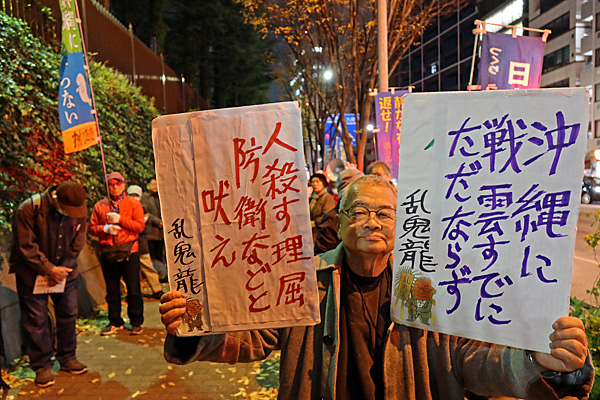 沖縄に
戦雲すでに
ただならず
乱鬼龍
人殺す理屈
防衛などと
吠え
乱鬼龍
日
返せ!
につない